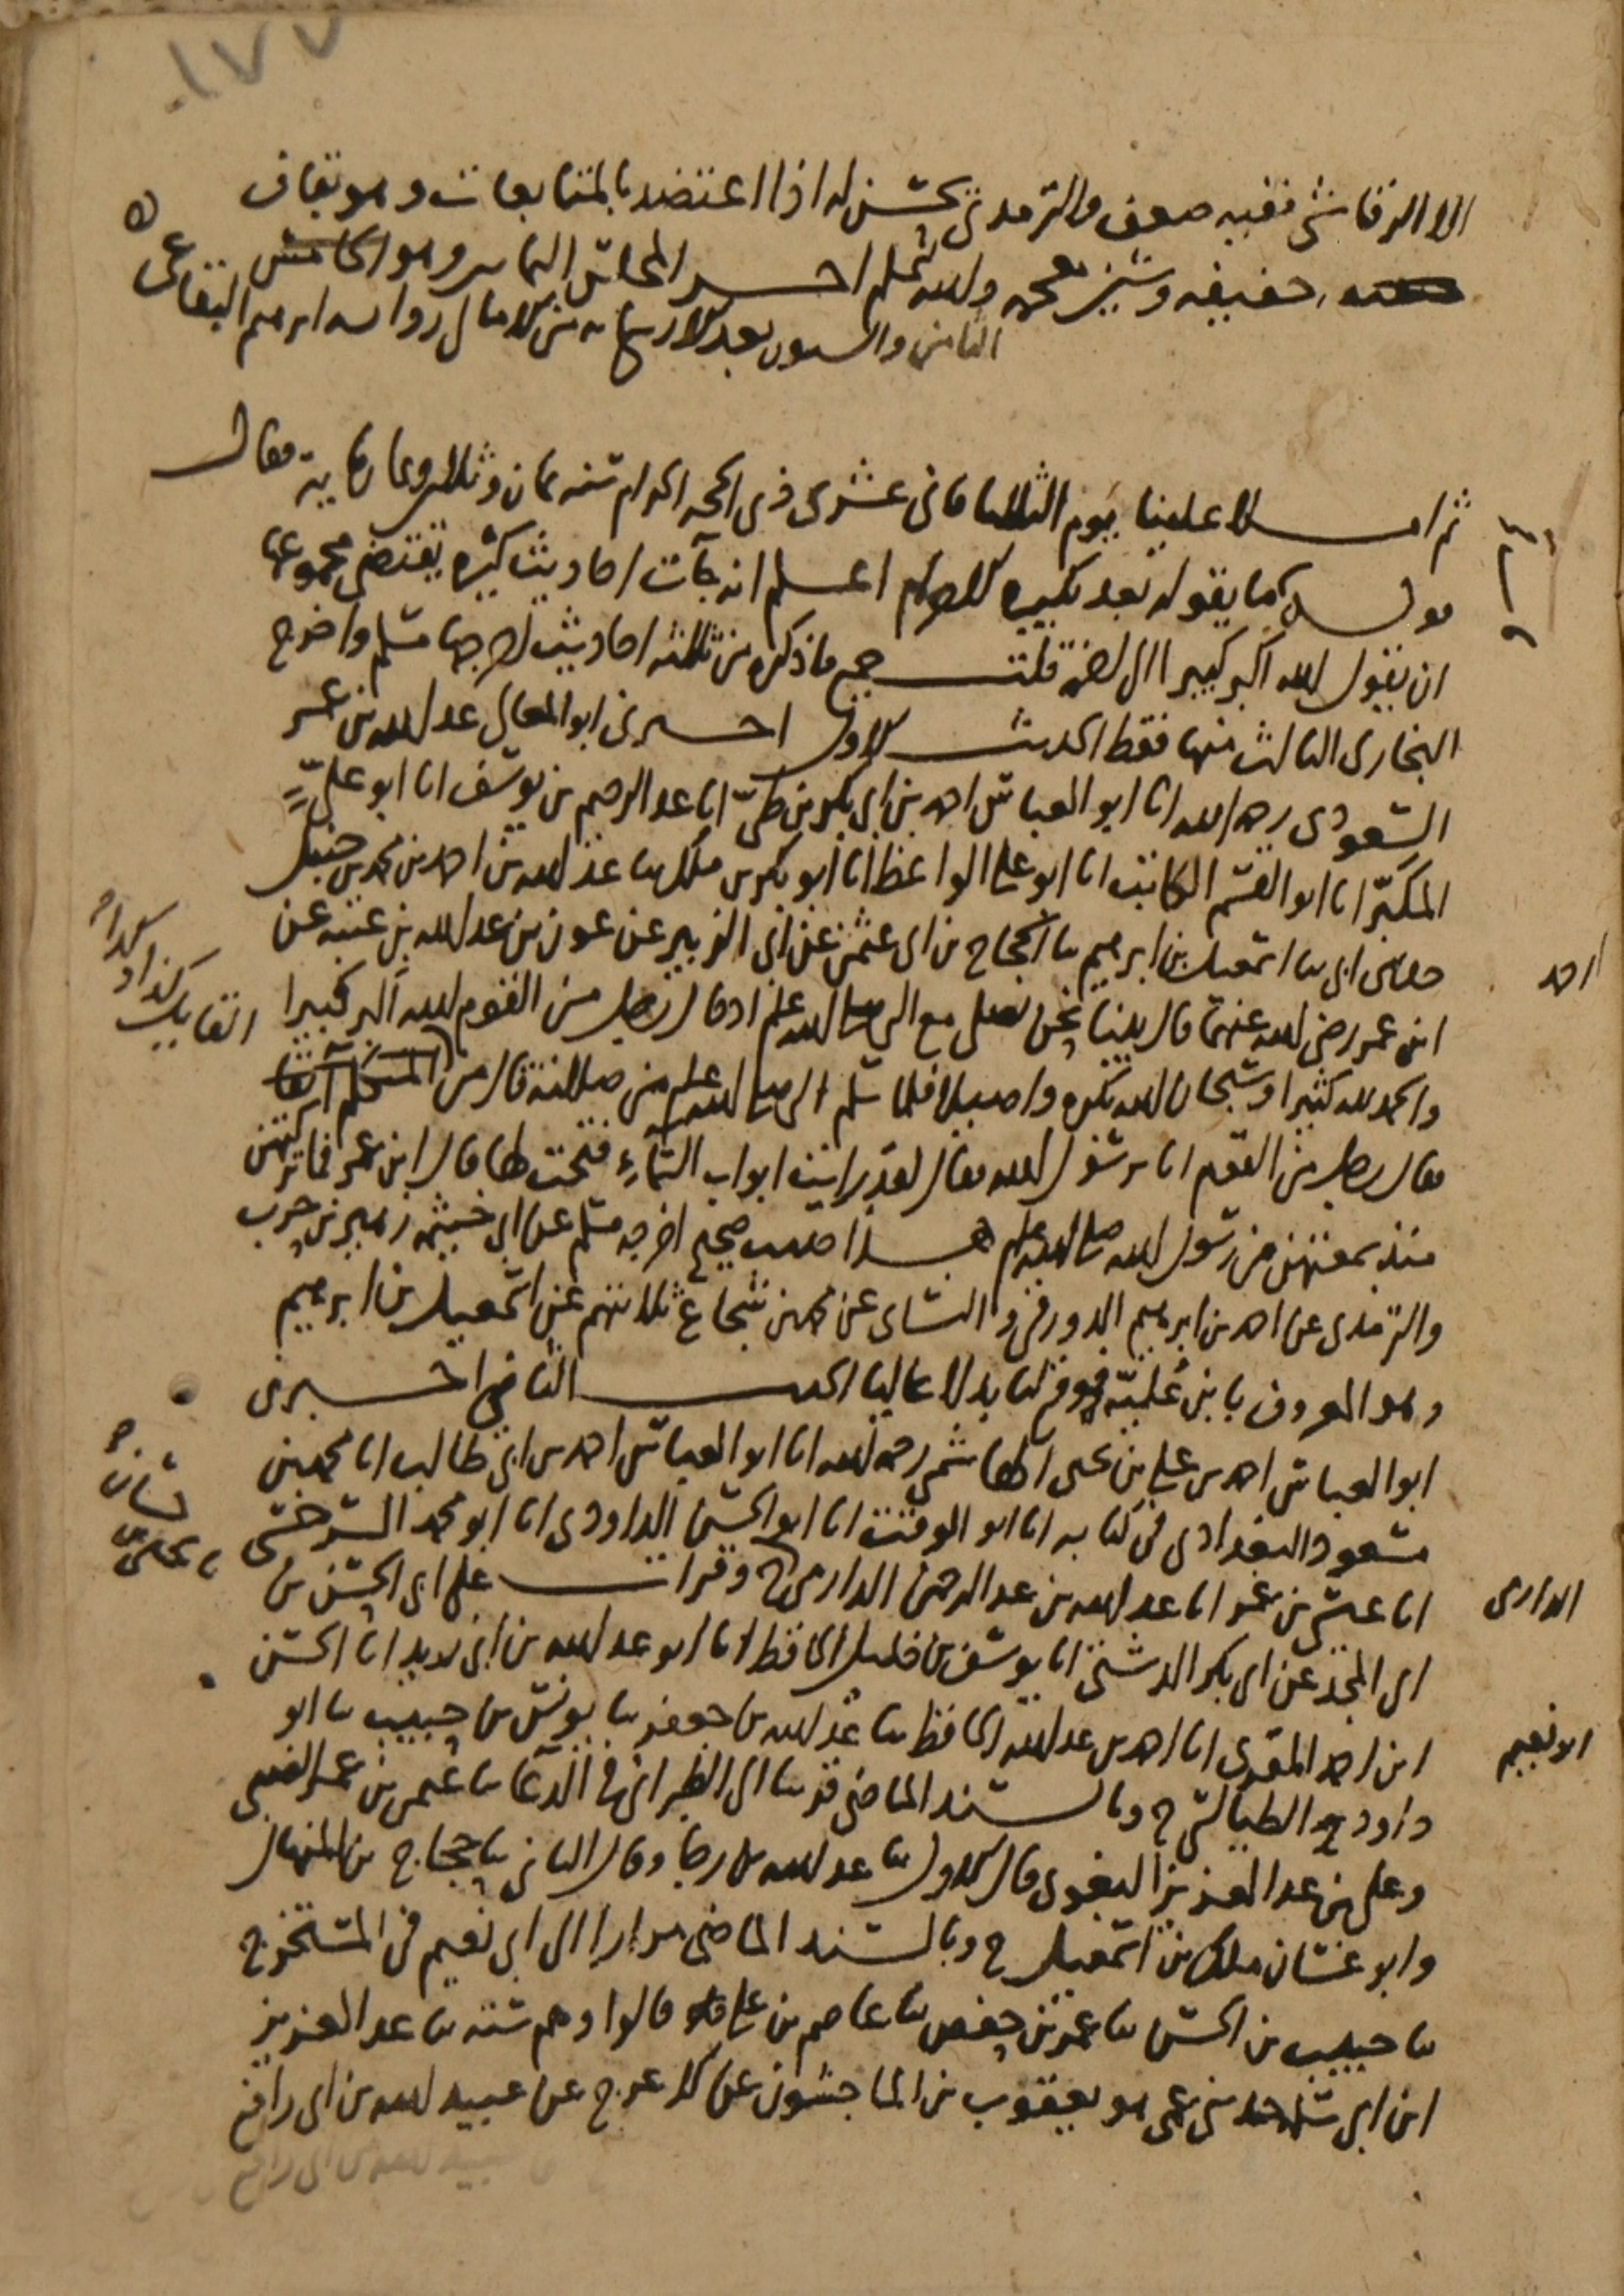 ١٧٧
الا الرقاشي ففيه ضعف والترمذي يحسن له اذا اعتضد بالمتابعات وهو بقاف
خفيفه وشين معجمه والله اعلم اخر المجلس
الثامن والستون بعد الاربعمايه من الامالي رواية ابرهيم البقاعي
ثم املا علينا يوم الثلاثا ثاني عشرى ذي الحجة الحرام سنة ثمان وثلاثين وثمان ماية فقال
قوله ما يقوله بعد تكبيرة الاحرام اعلم انه جآت احاديث كثيرة يقتضى مجموعها
ان يقول الله اكبر كبيرا الى اخره قلت جمع ما ذكره من ثلاثة احاديث اخرجها مسلم واخرج
البخاري الثالث منها فقط الحديث الاول اخبرني ابو المعالي عبد الله بن عمر
السعودي رحمه الله انا ابو العباس احمد بن ابي بكر بن طي انا عبد الرحيم بن يوسف انا ابو علي
المكبر انا ابو القسم الكاتب انا ابو علي الواعظ انا ابو بكر بن ملك ثنا عبد الله بن احمد بن محمد بن حنبل
حدثني ابي ثنا اسمعيل بن ابرهيم ثنا الحجاج بن ابي عثمن عن ابي الزبير عن عون بن عبد الله بن عتبه عن
احمد
ابن عمر رضي الله عنهما قال بينا نحن نصلي مع النبي صلى الله عليه وسلم اذ قال رجل من القوم الله اكبر كبيرا
والحمد لله كثيرا وسبحان الله بكرة واصيلا فلما سلم النبي صلى الله عليه وسلم من صلاته قال من المتكلم آنفا
القايل كذا وكذا
فقال رجل من القوم انا يرسول الله فقال لقد رايت ابواب السماء فتحت لها قال ابن عمر فما تركتهن
منذ سمعتهن من رسول الله صلى الله عليه وسلم هذا حديث صحيح اخرجه مسلم عن ابي خيثمه زهير بن حرب
والترمذي عن احمد بن ابرهيم الدورقي والنساي عن محمد بن شجاع ثلاثتهم عن اسمعيل بن ابرهيم
وهو المعروف بابن علية فوقع لنا بدلا عاليا الحديث الثاني اخبرني
ابو العباس احمد بن علي بن يحيى الهاشمي رحمه الله انا ابو العباس احمد بن ابي طالب انا محمد بن
مسعود البغدادي في كتابه انا ابو الوقت انا ابو الحسن الداودي انا ابو محمد السرخسي
انا عيسى بن عمر انا عبد الله بن عبد الرحمن الدارمي ح وقرات على ابي الحسن بن
الدارمي
ابي المجد عن ابي بكر الدشتي انا يوسف بن خليل الحافظ انا ابو عبد الله بن ابي زيد انا الحسن
ابن احمد المقرئ انا احمد بن عبد الله الحافظ ثنا عبد الله بن جعفر ثنا يونس بن حبيب ثنا ابو
ابو نعيم
داود الطيالسي ح وبالسند الماضي قريبا الى الطبراني في الدعا ثنا عمر الضبي
وعلي بن عبد العزيز البغوي قال الاول ثنا عبد الله بن رجا وقال الثاني ثنا حجاج بن المنهال
وابو غسان ملك بن اسمعيل ح وبالسند الماضي مرارا الى ابي نعيم في المستخرج
ثنا حبيب بن الحسن ثنا عمر بن حفص ثنا عاصم بن علي قالوا وهم ستة ثنا عبد العزيز
ابن ابي سلمه حدثني عمي هو يعقوب بن الماجشون عن الاعرج عن عبيد الله بن ابي رافع